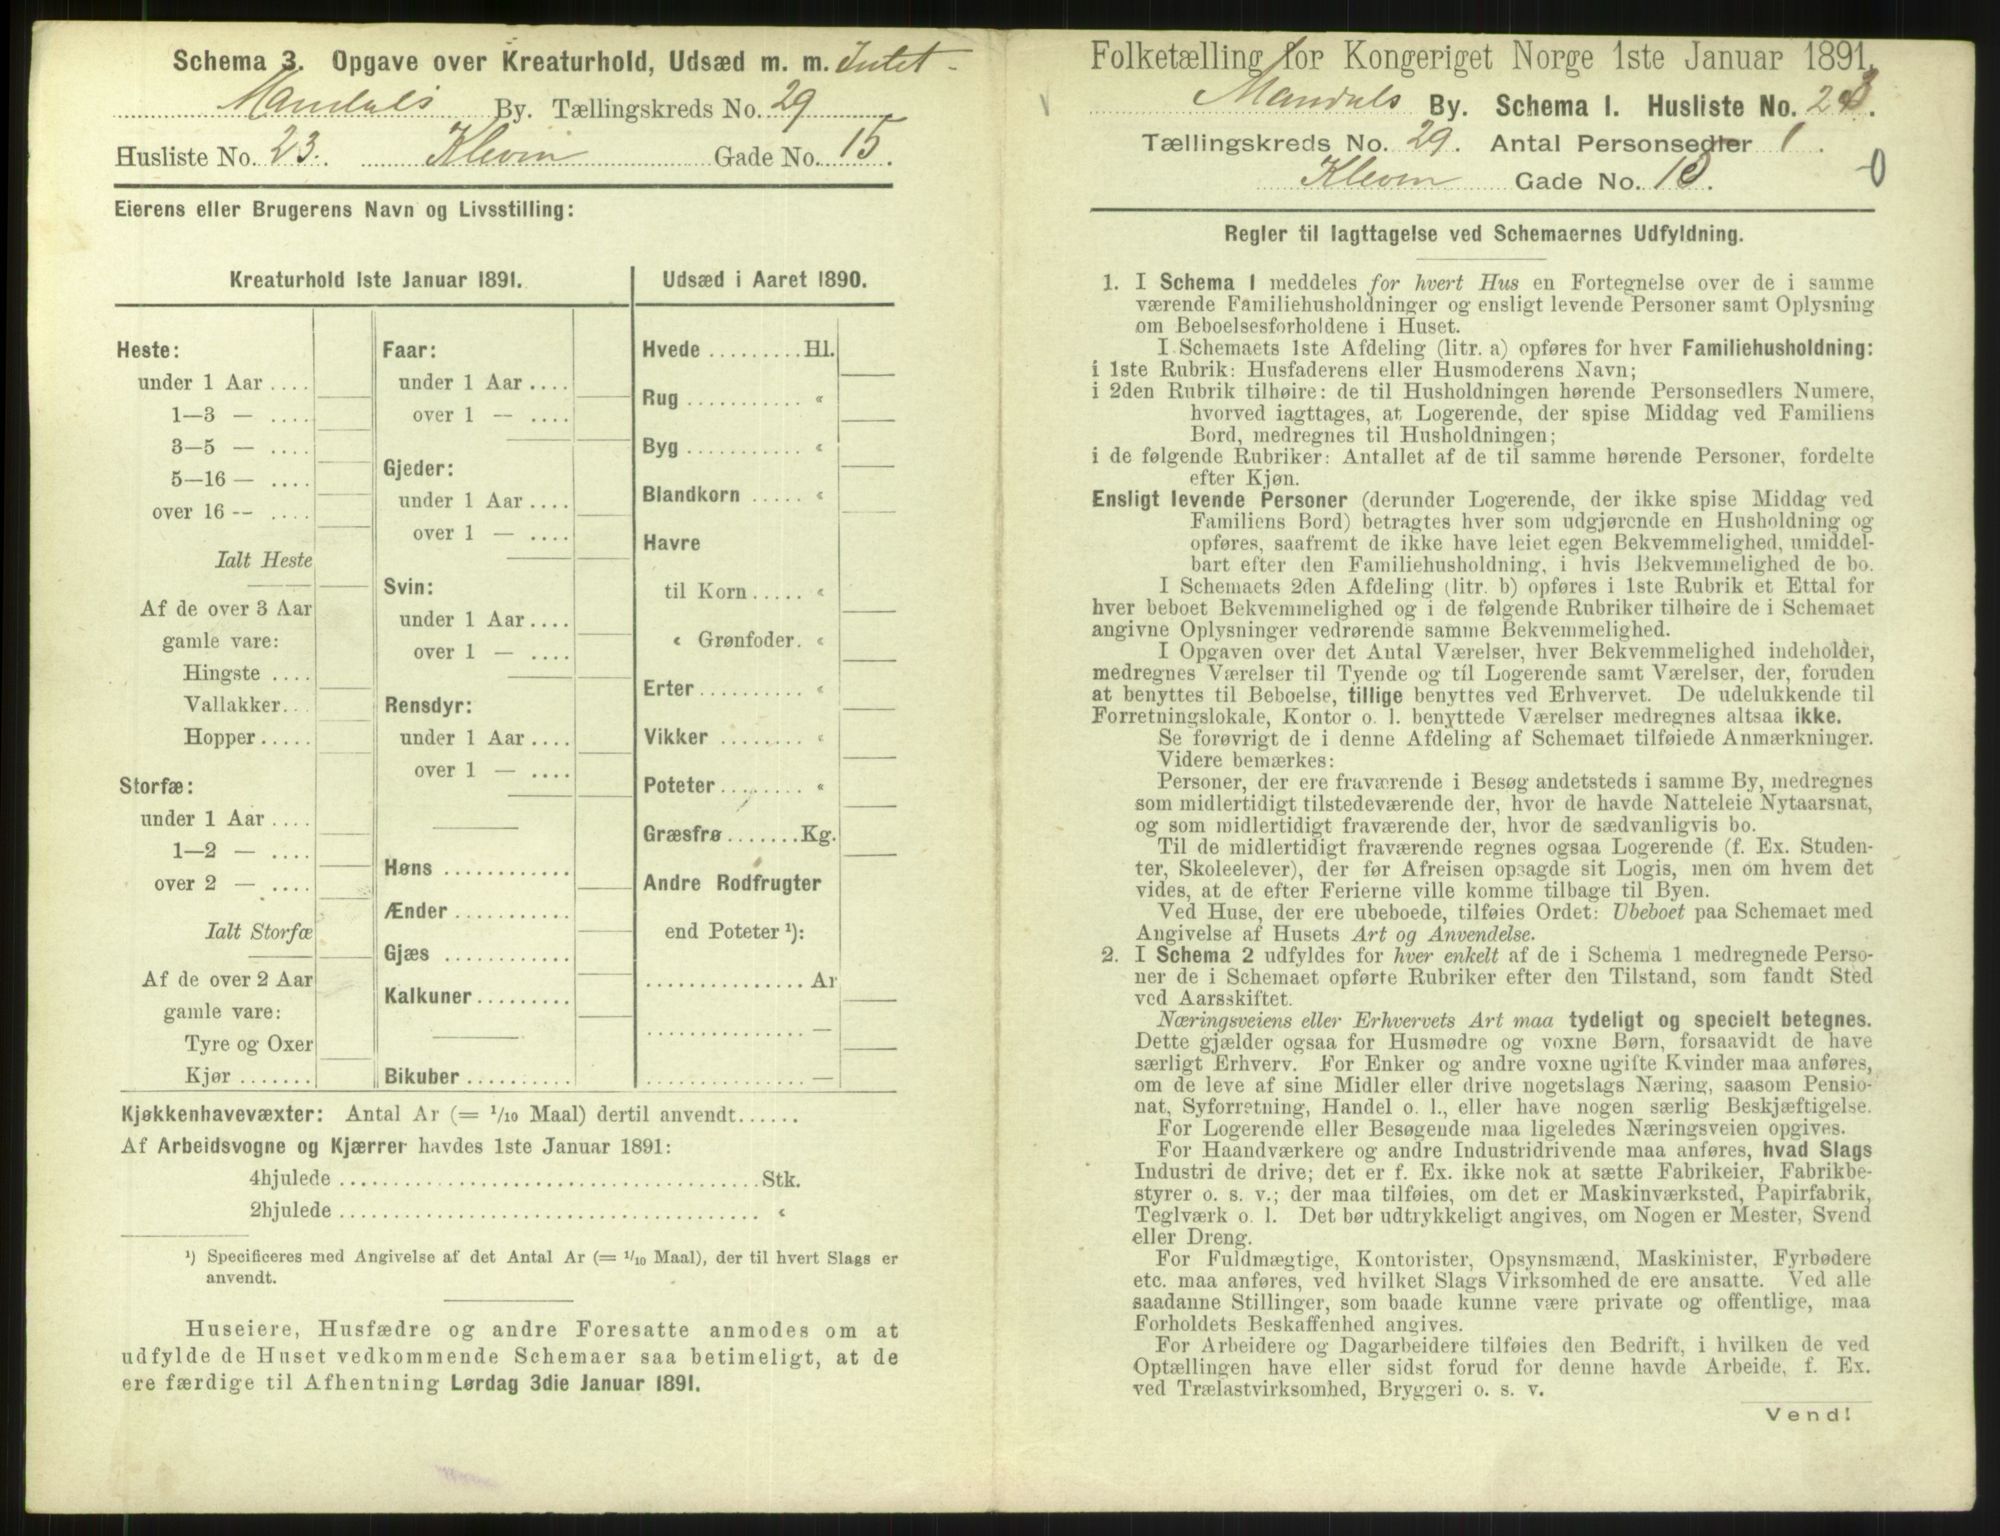 Schema 3. Opgave over Kreaturhold, Udsæd m. m. Intet -
Mandals By. Tællingskreds No. 29
Husliste No. 23. Klevin Gade No. 15.
Eierens eller Brugerens Navn og Livsstilling:
Kreaturhold 1ste Januar 1891.
Heste:
under 1 Aar ....
1—3 — ....
3—5 — ....
5—16 — ....
over 16 -- ....
Ialt Heste
Af de over 3 Aar
gamle vare:
Hingste ....
Vallakker...
Hopper.....
Storfæ:
under 1 Aar ....
1—2 — ....
over 2 — ....
Ialt Storfæ
Af de over 2 Aar
gamle vare:
Tyre og Oxer
Kjør .......
Faar:
under 1 Aar ....
over 1 — ....
Gjeder:
under 1 Aar ....
over 1 — ....
Svin:
under 1 Aar ....
over 1 — ....
Rensdyr:
under 1 Aar ....
over 1 — ....
Høns ............
Ænder ...........
Gjæs ............
Kalkuner .........
Bikuber ..........
Udsæd i Aaret 1890.
Hvede .........Hl.
Rug ........... «
Byg ........... «
Blandkorn ..... «
Havre
til Korn ..... «
« Grønfoder. «
Erter .......... «
Vikker ........ «
Poteter ........ «
Græsfrø .......Kg.
Andre Rodfrugter
end Poteter ¹):
............... Ar
............... —
............... —
Kjøkkenhavevæxter: Antal Ar (= 1/10 Maal) dertil anvendt......
Af Arbeidsvogne og Kjærrer havdes 1ste Januar 1891:
4hjulede ....................................... Stk.
2hjulede ....................................... «
¹) Specificeres med Angivelse af det Antal Ar (= 1/10 Maal), der til hvert Slags er
anvendt.
Huseiere, Husfædre og andre Foresatte anmodes om at
udfylde de Huset vedkommende Schemaer saa betimeligt, at de
ere færdige til Afhentning Lørdag 3die Januar 1891.
Folketælling for Kongeriget Norge 1ste Januar 1891.
Mandals By. Schema I. Husliste No. 23.
Tællingskreds No. 29. Antal Personsedler 1.
Klevin Gade No. 15. -0
Regler til Iagttagelse ved Schemaernes Udfyldning.
1. I Schema 1 meddeles for hvert Hus en Fortegnelse over de i samme
værende Familiehusholdninger og ensligt levende Personer samt Oplysning
om Beboelsesforholdene i Huset.
I Schemaets 1ste Afdeling (litr. a) opføres for hver Familiehusholdning:
i 1ste Rubrik: Husfaderens eller Husmoderens Navn;
i 2den Rubrik tilhøire: de til Husholdningen hørende Personsedlers Numere,
hvorved iagttages, at Logerende, der spise Middag ved Familiens
Bord, medregnes til Husholdningen;
i de følgende Rubriker: Antallet af de til samme hørende Personer, fordelte
efter Kjøn.
Ensligt levende Personer (derunder Logerende, der ikke spise Middag ved
Familiens Bord) betragtes hver som udgjørende en Husholdning og
opføres, saafremt de ikke have leiet egen Bekvemmelighed, umiddel-
bart efter den Familiehusholdning, i hvis Bekvemmelighed de bo.
I Schemaets 2den Afdeling (litr. b) opføres i 1ste Rubrik et Ettal for
hver beboet Bekvemmelighed og i de følgende Rubriker tilhøire de i Schemaet
angivne Oplysninger vedrørende samme Bekvemmelighed.
I Opgaven over det Antal Værelser, hver Bekvemmelighed indeholder,
medregnes Værelser til Tyende og til Logerende samt Værelser, der, foruden
at benyttes til Beboelse, tillige benyttes ved Erhvervet. De udelukkende til
Forretningslokale, Kontor o. l. benyttede Værelser medregnes altsaa ikke.
Se forøvrigt de i denne Afdeling af Schemaet tilføiede Anmærkninger.
Videre bemærkes:
Personer, der ere fraværende i Besøg andetsteds i samme By, medregnes
som midlertidigt tilstedeværende der, hvor de havde Natteleie Nytaarsnat,
og som midlertidigt fraværende der, hvor de sædvanligvis bo.
Til de midlertidigt fraværende regnes ogsaa Logerende (f. Ex. Studen-
ter, Skoleelever), der før Afreisen opsagde sit Logis, men om hvem det
vides, at de efter Ferierne ville komme tilbage til Byen.
Ved Huse, der ere ubeboede, tilføies Ordet: Ubeboet paa Schemaet med
Angivelse af Husets Art og Anvendelse.
2. I Schema 2 udfyldes for hver enkelt af de i Schema 1 medregnede Perso-
ner de i Schemaet opførte Rubriker efter den Tilstand, som fandt Sted
ved Aarsskiftet.
Næringsveiens eller Erhvervets Art maa tydeligt og specielt betegnes.
Dette gjælder ogsaa for Husmødre og voxne Børn, forsaavidt de have
særligt Erhverv. For Enker og andre voxne ugifte Kvinder maa anføres,
om de leve af sine Midler eller drive nogetslags Næring, saasom Pensio-
nat, Syforretning, Handel o. l., eller have nogen særlig Beskjæftigelse.
For Logerende eller Besøgende maa ligeledes Næringsveien opgives.
For Haandværkere og andre Industridrivende maa anføres, hvad Slags
Industri de drive; det er f. Ex. ikke nok at sætte Fabrikeier, Fabrikbe-
styrer o. s. v.; der maa tilføies, om det er Maskinværksted, Papirfabrik,
Teglværk o. l. Det bør udtrykkeligt angives, om Nogen er Mester, Svend
eller Dreng.
For Fuldmægtige, Kontorister, Opsynsmænd, Maskinister, Fyrbødere
etc. maa anføres, ved hvilket Slags Virksomhed de ere ansatte. Ved alle
saadanne Stillinger, som baade kunne være private og offentlige, maa
Forholdets Beskaffenhed angives.
For Arbeidere og Dagarbeidere tilføies den Bedrift, i hvilken de ved
Optællingen have eller sidst forud for denne havde Arbeide, f. Ex.
ved Trælastvirksomhed, Bryggeri o. s. v.
Vend!